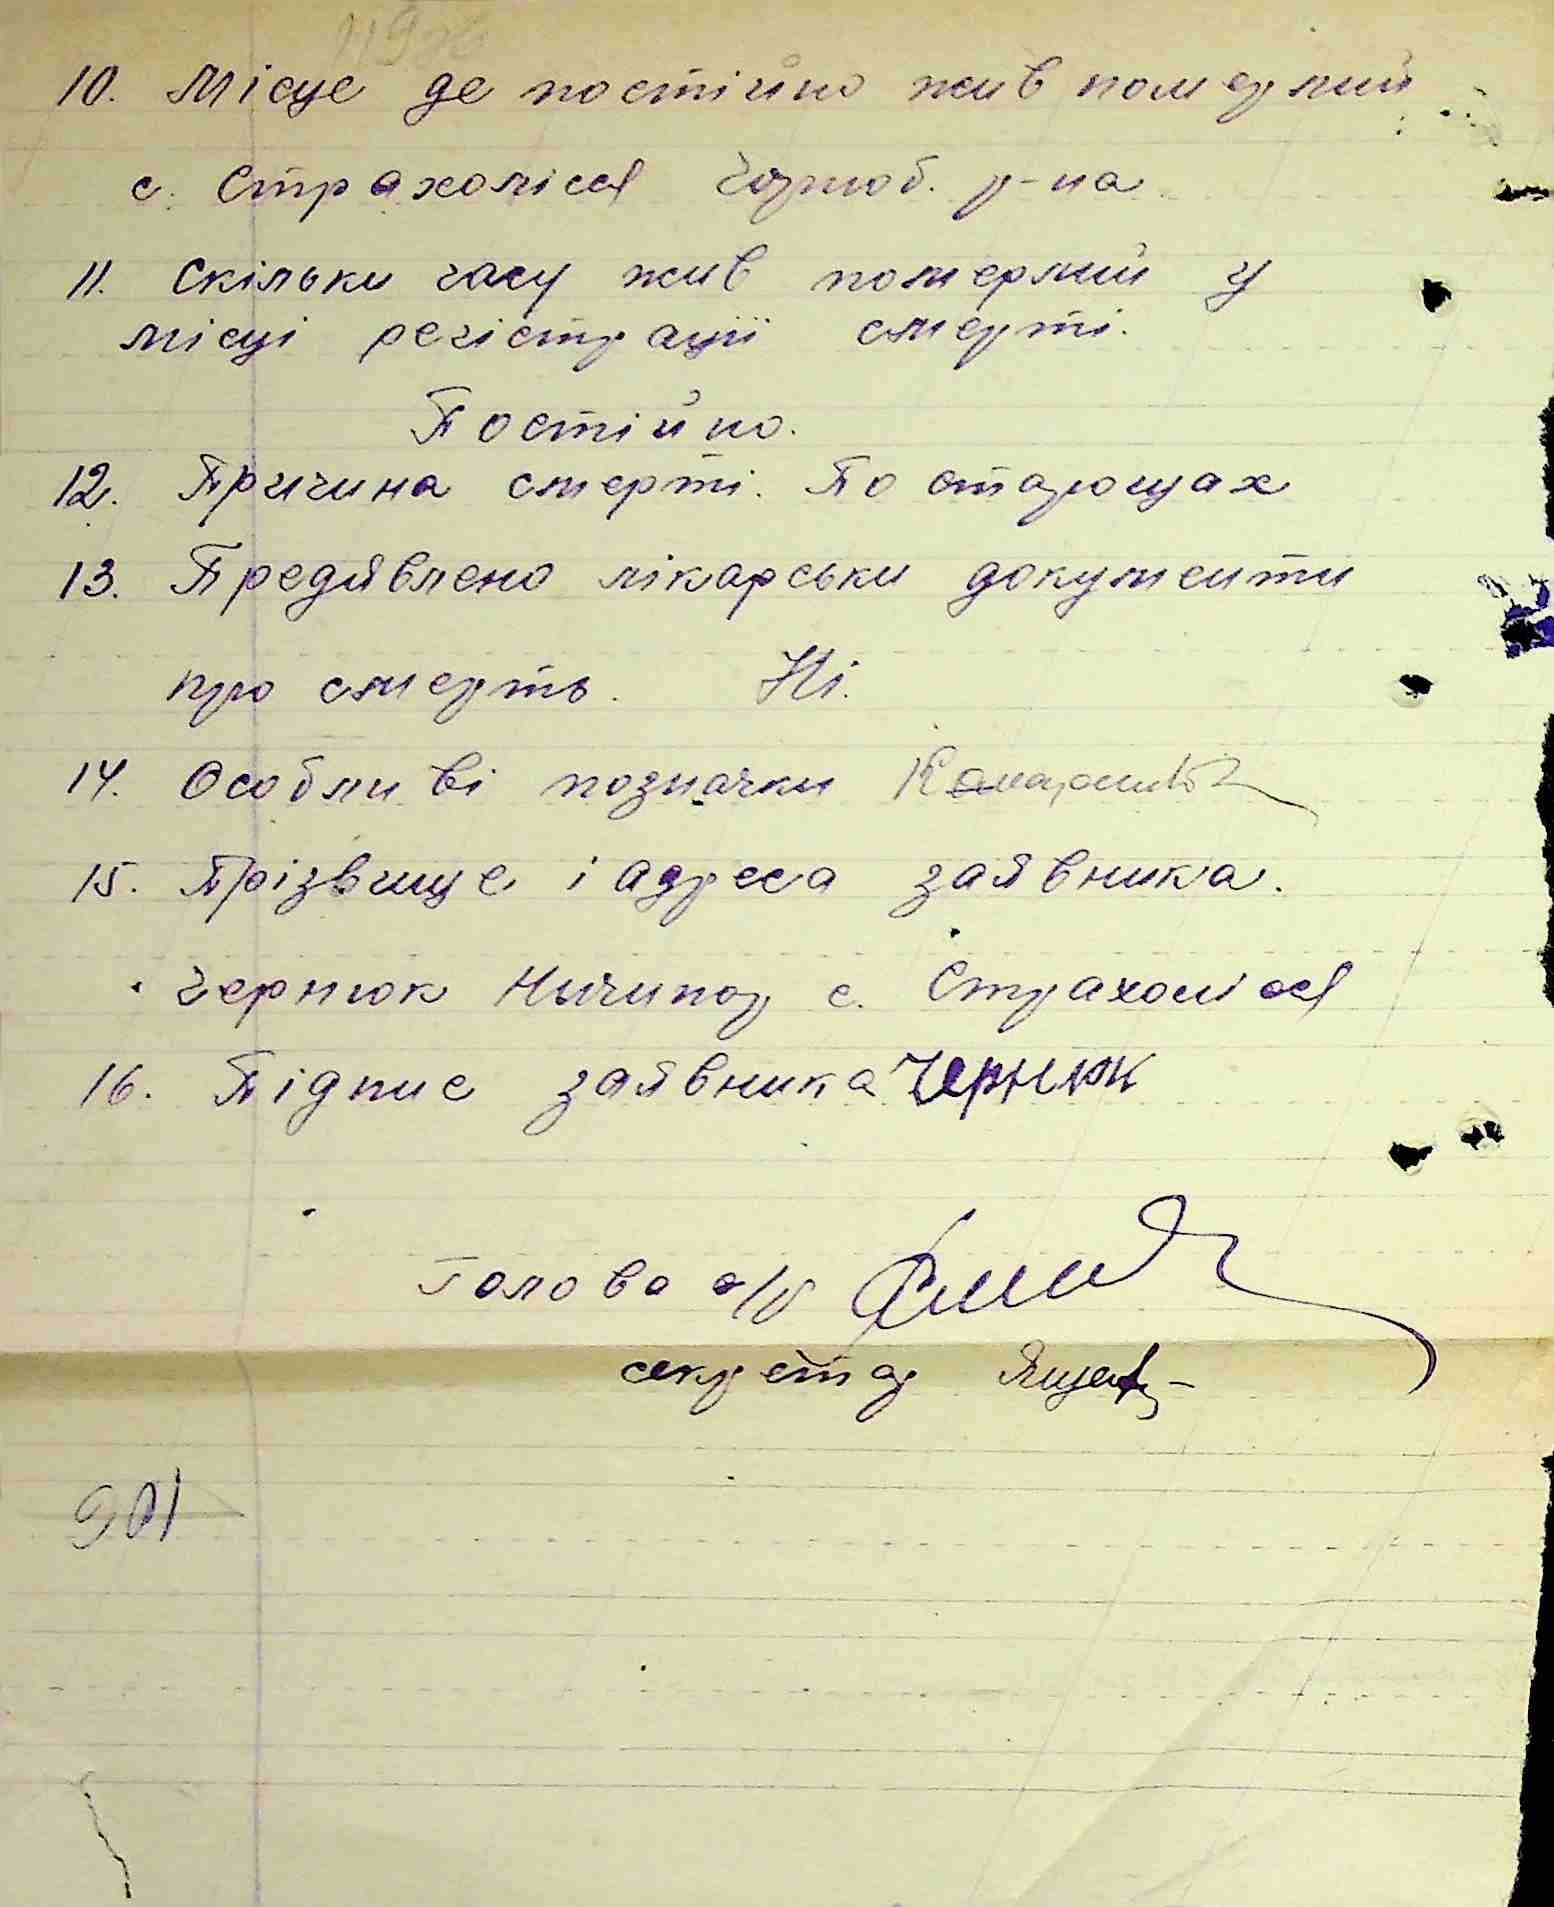 10. Місце де постійно жив померлий
с. Страхолісся Чорноб. р-на
11. Скільки часу жив померлий у
місці регістрації смерті.
Постійно.
12. Причина смерті. По старощах
13. Предявлено лікарськи документи
про смерть. Ні.
14. Особливі позначки
15. Прізвище і адреса заявника.
Чернюк Ничипор с. Страхолісся
16. Підпис заявника Чернюк
Голова с/р
секретар